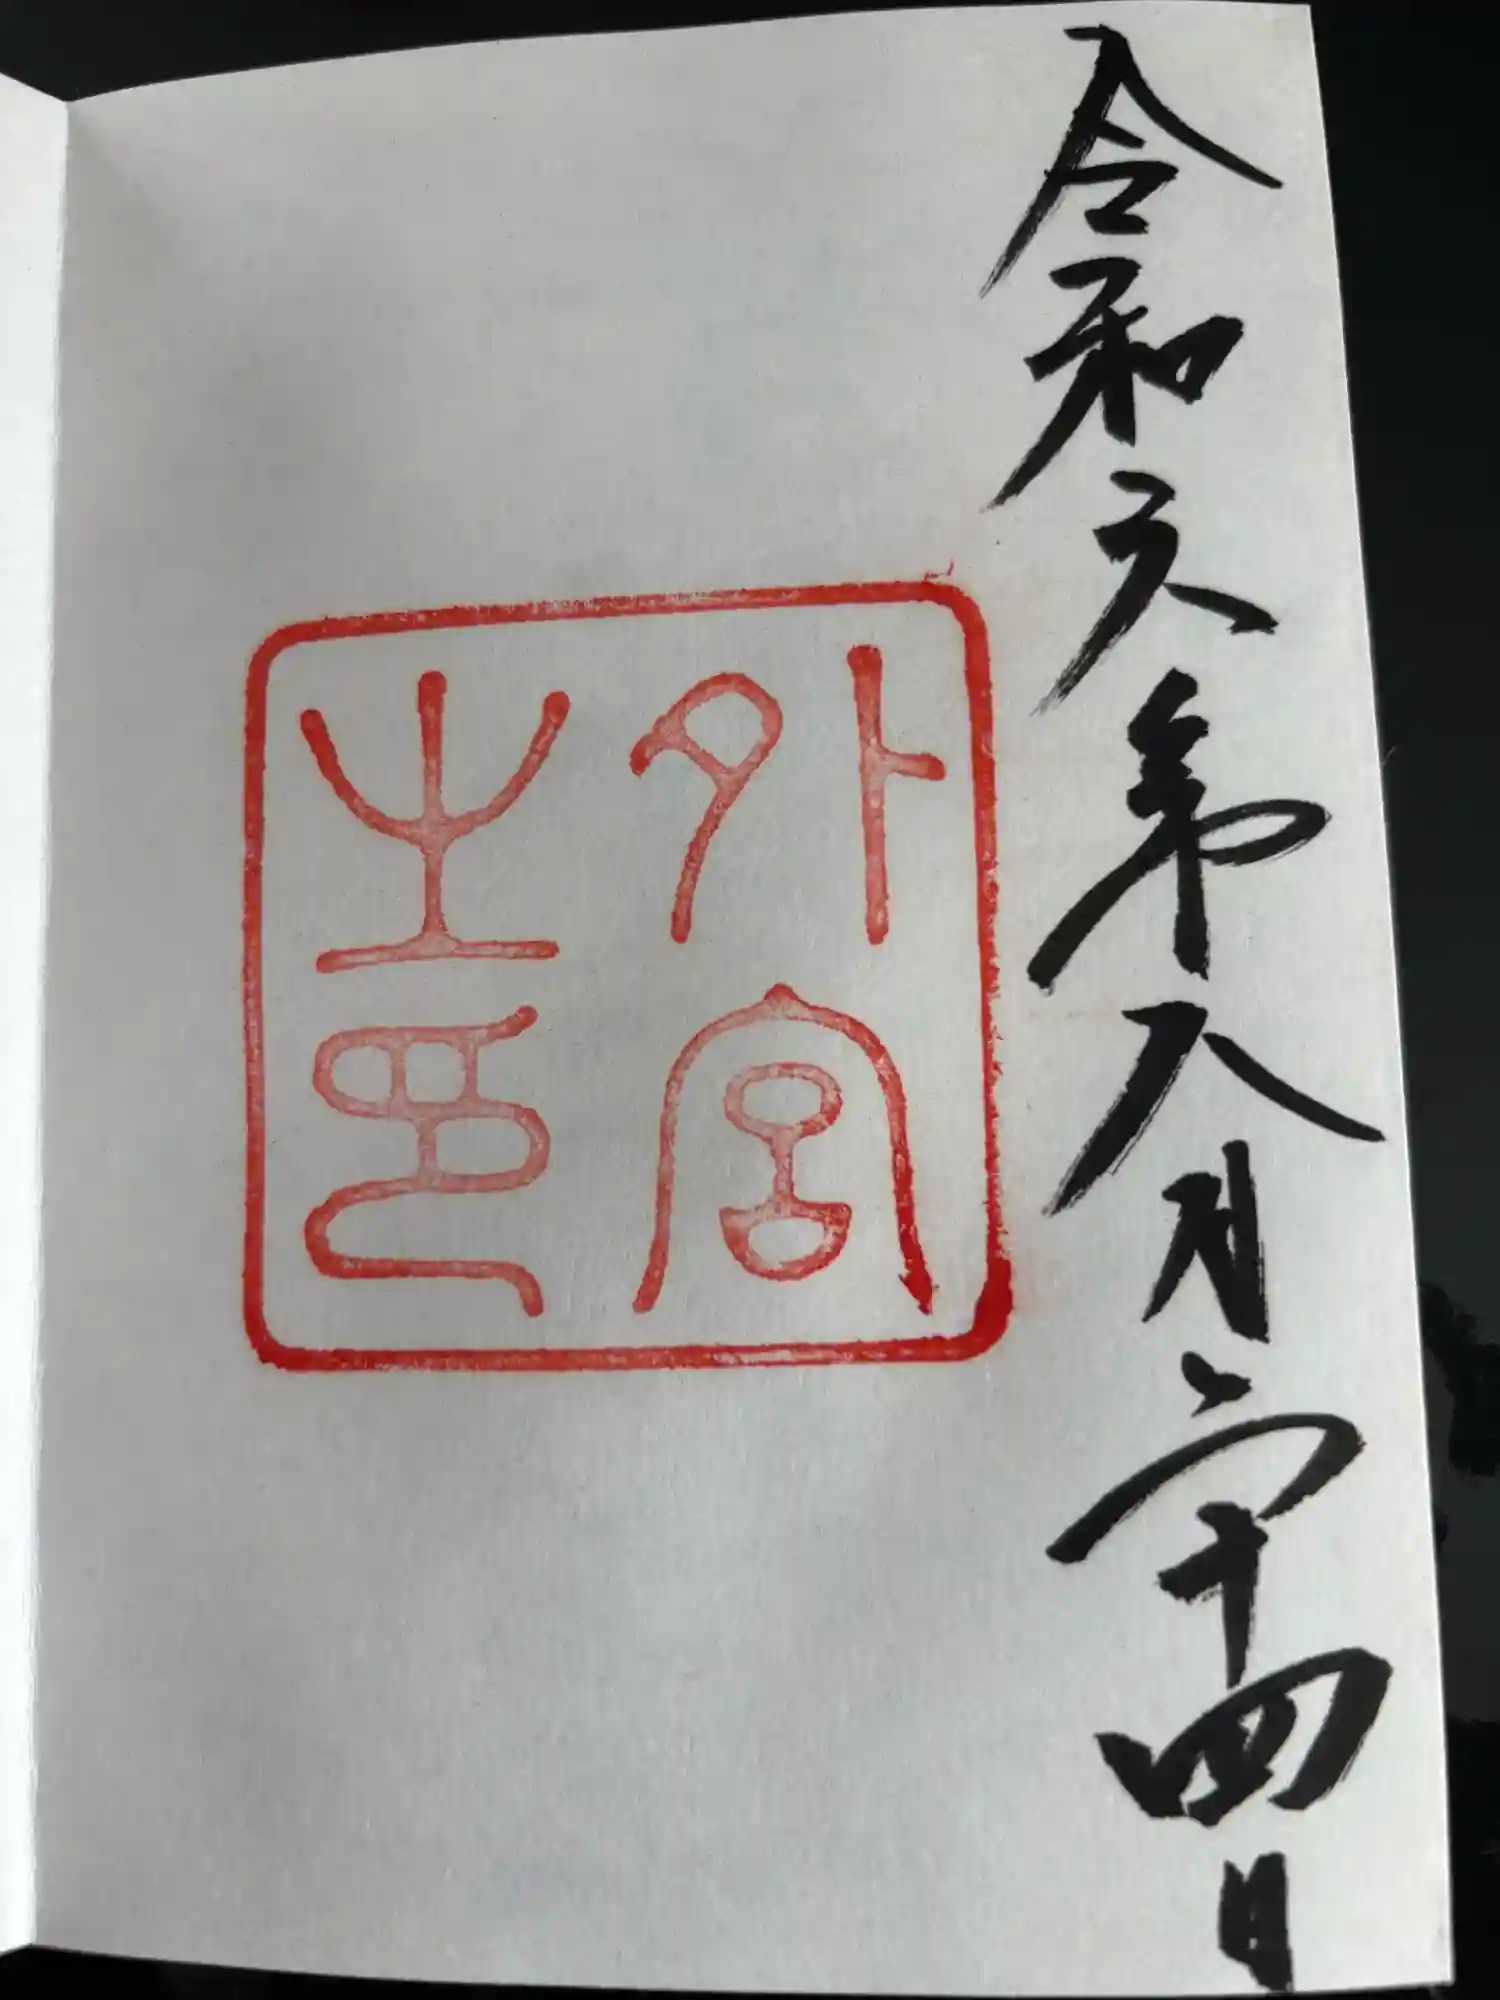 令和六年八月二十四日
外宮
之印